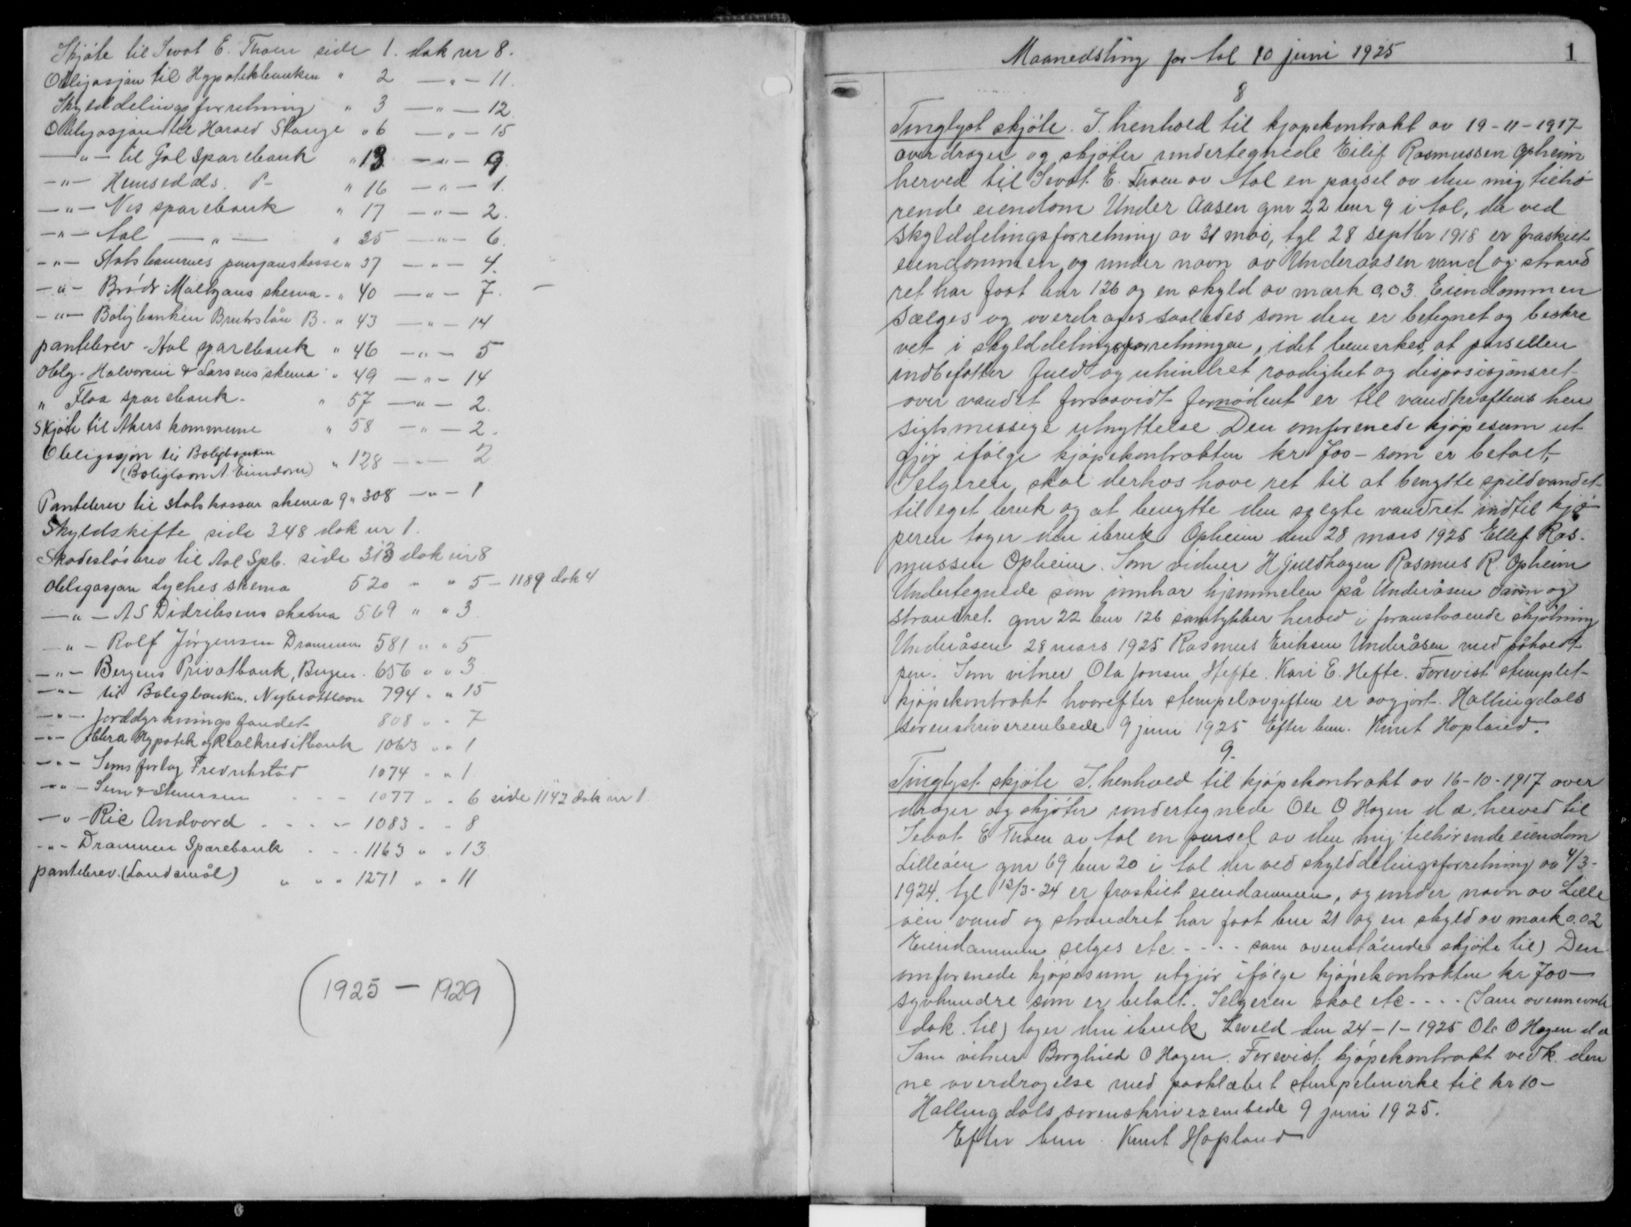 Skjøte til Sevat E. Thoen side 1. dok nr 8.
Obligasjon til Hypotekbanken " 2 — " — 11.
Skylddelingsforretning " 3 — " — 12.
Obligasjon til Harald Stange " 6 — " — 15
— " — til Gol Sparebank " 13 — " — 9.
— " — Hemsedals. d- " 16 — " — 1.
— " — Nes sparebank " 17 — " — 2.
— " — Aal — " — " 35 — " — 6.
— " — Statsbanernes pensjonskasse " 37 — " — 4.
— " — Brødr Maltzaus skema - " 40 — " — 7. —
— " — Boligbanken Brukslån B. " 43 — " — 14
pantebrev - Hol sparebank " 46 — " — 5
Oblg. Halvorsen & Larsens skema " 49 — " — 14
" Flaa sparebank. " 57 — " — 2.
Skjøte til Akers kommune " 58 — " — 2.
Obligasjon til Boligbanken
(Boliglaan A. Eiendom) " 128 — " — 2
Pantebrev til Statskassen skema 9 " 308 — " — 1
Skyldskifte side 348 dok nr 1.
Skadesløsbrev til Aal Spb. side 313 dok nr 8
Obligasjon Lyches skema 520 " " 5 - 1189 dok 4
— " — A S Didriksens skema 569 " " 3
— " — Rolf Jørgensen Drammen 581 " " 5
— " — Bergens Privatbank, Bergen. 656 " " 3
— " — til Boligbanken. Nybrottlaan 794 " " 15
— " — Jorddyrkningsfondet 808 " " 7
— " — Hypotek og Realkreditbank 1063 " " 1
— " — Sems forlag Fredrikstad 1074 " " 1
— " — Sem & Stenersen 1077 " " 6 side 1142 dok nr 1
— " — Ric Andvord 1083 " " 8
— " — Drammen Sparebank 1163 " " 13
pantebrev (Landsmål) " " " 1271 " " 11
(1925 — 1929)
Maanedsting for Aal 10 juni 1925
1
8
Tinglyst skjøte. I henhold til kjøpekontrakt av 19-11-1917
overdrager og skjøter undertegnede Eilif Rasmussen Opheim
herved til Sevat E. Thoen av Aal en parsel av den mig tilhø
rende eiendom Under Aasen gnr 22 bnr 9 i Aal, der ved
skylddelingsforretning av 31 mai, tgl 28 septbr 1918 er fraskilt
eiendommen og under navn av Underaasen vand og strand
ret har faat bnr 126 og en skyld av mark 0,03. Eiendommen
sælges og overdrages saaledes som den er betegnet og beskre
vet i skylddelingsforretningen, idet bemerkes, at parsellen
indbefatter fuld og uhindret raadighet og disposisjonsret
over vandet forsaavidt fornødent er til vandkraftens hen
sigtsmessige utnyttelse. Den omforenede kjøpesum ut
gjør ifølge kjøpekontrakten kr 700 - som er betalt
Selgeren skal derhos have ret til at benytte spildvandet
til eget bruk og at benytte den solgte vandret indtil kjø
peren tager den ibruk Opheim den 28 mars 1925 Ellef Ras-
mussen Opheim. Som vidner H Gueldhagen Rasmus R. Opheim
Undertegnede som innhar hjemmelen på Underåsen vann og
strandret gnr 22 bnr 126 samtykker herved i foranstaaende skjøtning
Underåsen 28 mars 1925 Rasmus Eriksen Underåsen med påholdt
pen. Som vitner Ola Jonsen Hefte. Kari E. Hefte. Forevist stemplet
kjøpekontrakt hvorefter stempelavgiften er avgjort. Hallingdals
sorenskriverembede 9 juni 1925 Efter bem. Knut Hopland.
9.
Tinglyst skjøte I henhold til kjøpekontrakt av 16-10-1917 over
drager og skjøter undertegnede Ole O Hagen d.æ. herved til
Sevat E Thoen av Aal en parsel av den mig tilhørende eiendom
Lilleøen gnr 69 bnr 20 i Aal der ved skylddelingsforretning av 4/3-
1924. tgl 12/3-24 er fraskilt eiendommen, og under navn av Lille
øen vand og strandret har faat bnr 21 og en skyld av mark 0.02
Eiendommen selges etc - - - - som ovenstående skjøte til) Den
omforenede kjøpesum utgjør ifølge kjøpekontrakten kr 700 —
syvhundre som er betalt. Selgeren skal etc - - - - (Som ovennevnte
dok. til) tager den ibruk Leveld den 24-1-1925 Ole O Hagen d æ
Som vitner Borghild O Hagen. Forevist kjøpekontrakt vedk. den
ne overdragelse med paaklæbet stempelmerke til kr 10 -
Hallingdals sorenskriverembede 9 juni 1925.
Efter bem. Knut Hopland